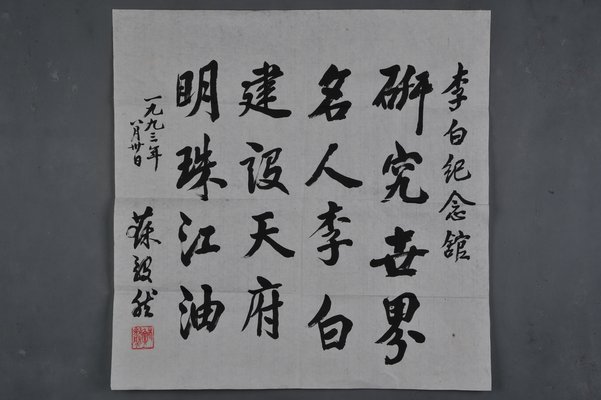 李白纪念舘
研究世界
名人李白
建设天府
明珠江油
一九九三年
八月卅日
蘇毅然